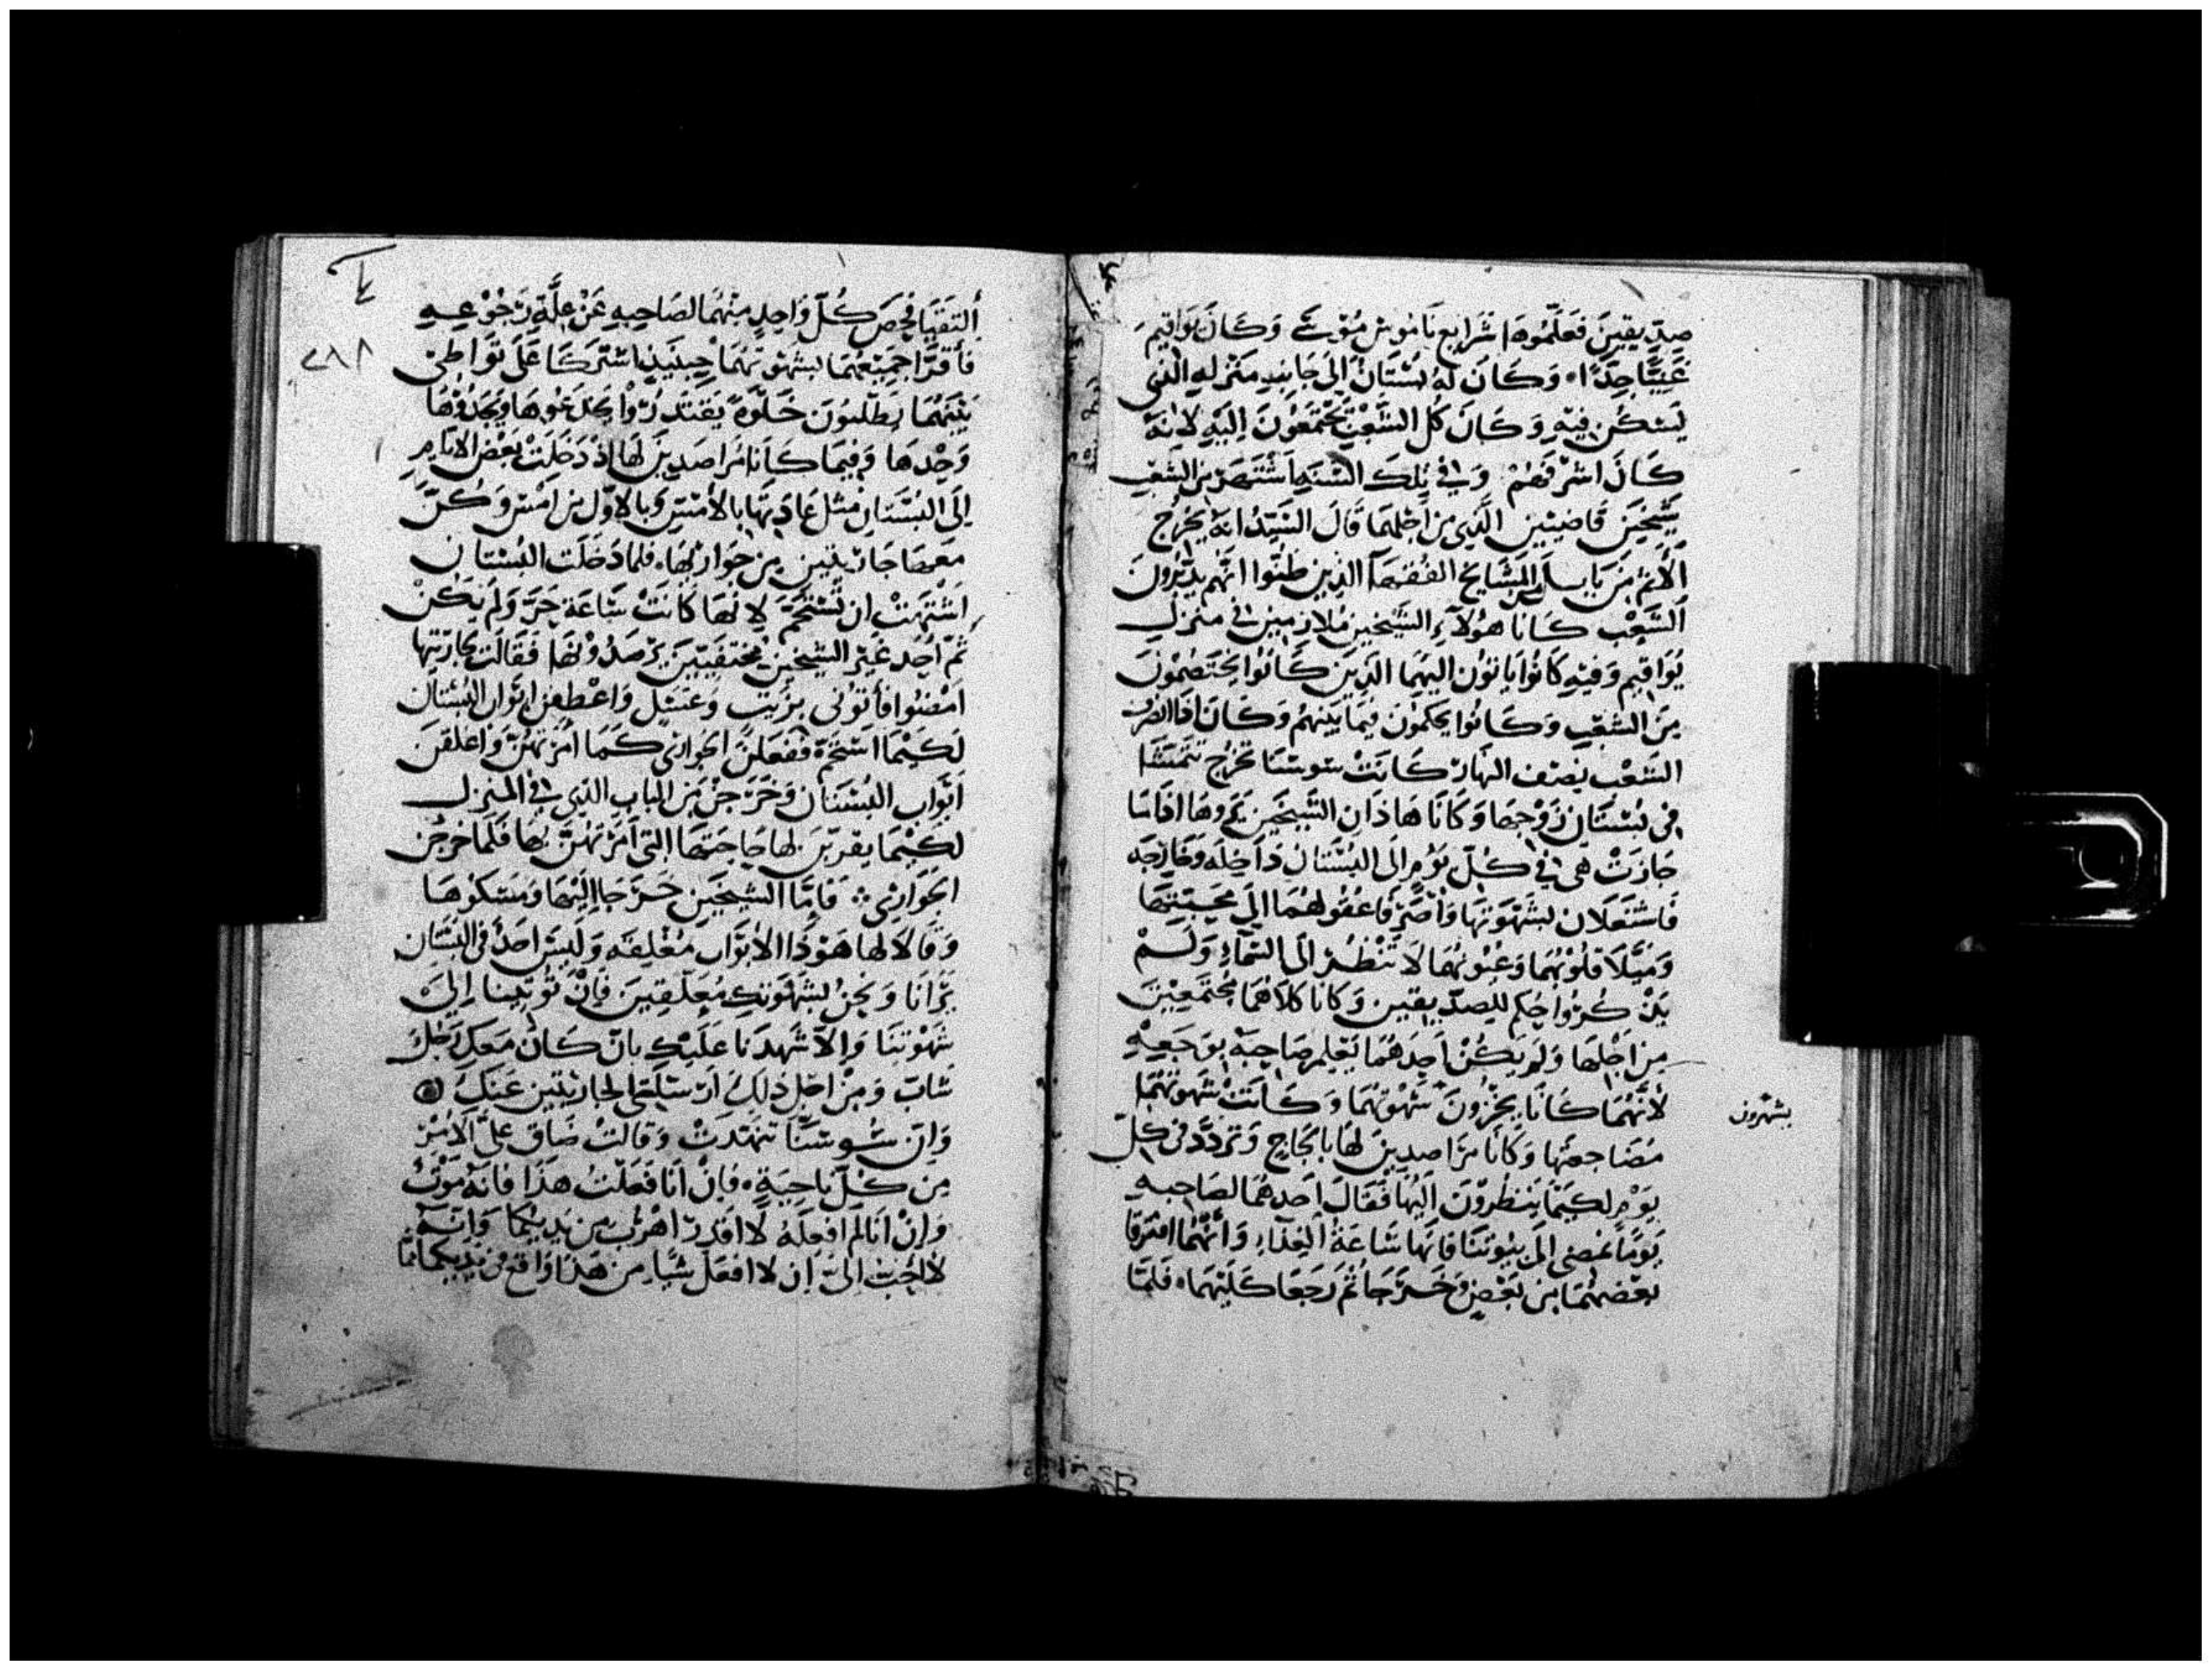 صدِّيقينَ فَعَلَّمُوهَا شَرَايع نَامُوسْ مُوْسَى وَكَانَ يُوَاقِيمَ
غَنِيًّا جِدًا وَكَانَ لهُ بُسْتَانٌ إلَى جَانِبِ مَنْزلهِ الذي
يَسْكُن فِيْهِ وَكَانَ كُل الشَّعْبْ يَجْتَمعُونَ اِليْهِ لانهُ
كَانَ اشرَفَهُمْ وَفي تِلكَ السَّنَهِ اشْتَهَرَ مِن الشعبِ
شَيْخَيَن قَاضيَين الَّذِي مِن اجلِهمَا قَالَ السَّيِّدُ انهُ يَخْرُجُ
الاثمُ مِنَ بَابِل مِن المشَايخ الفُقهَا الذِين ظنُّوا انَّهم يدَبِّرُونَ
الشَّعْب كَانا هؤلاءِ الشَيْخين مُلازمِين في منزلِ
يُوَاقيم وَفيْهِ كَانُوا يَاتوُن اليهمَا الذِينَ كَانُوا يَختَصمُونَ
مِنَ الشعْبِ وَكَانُوا يَحكمُون فيمَا بَيَنهُم وَكَانَ اذَا انصَرَف
الشَعْب نِصْف النهَار كَانَتْ سَوسَنَا تَخْرُج تَتمَشَا
في بُسْتَان زَوْجهَا وَكَانَا هَاذَان الشَيْخَين يَرَوهَا اذَا مَا
جَازَتْ هى في كُلِّ يَوْمٍ الَى البُسْتَان دَاخِلَه وَخَارِجَه
فَاشْتَعَلَان بِشَهْوَتهَا وَاصْرَفَا عقُولهُمَا الَي مَحَبَّتهَا
وَمَيَّلَا قلُوبُهُمَا وَعيُونهُمَا لَا تَنْظُر الَى السَّمَاءِ وَلَمْ
يَذْكُرُوا حُكم للصدِّيقين وَكانَا كلاهُمَا مُجْتَمِعِينَ
مِن اجْلِهَا وَلم يَكُنْ احدهُمَا يُعْلِم صَاحِبَهُ بوَجَعِهِ
لأَنَّهُمَا كَانَا يخْزُونَ شَهْوتهُمَا وَكَانَتْ شَهْوَتهُمَا
بشهرون
مُضَاجعتهَا وَكَانَا مَرَاصدِينَ لهَا بِالحَاحٍ وَتَردُّد في كلِّ
يَوْمٍ لكَيمَا يَنظرُوْنَ اليْهَا فَقَالَ احَدهُمَا لصَاحِبهِ
يَوْمًا نمْضي الَى بيُوتنَا فانهَا سَاعَةُ الغذَاءِ وَانَّهُمَا افترَقَا
بَعْضهُمَا مِن بَعْضٍ وَخَرَجَا ثُمَ رَجَعَا كَلَيْهمَا فَلمَّا
٢٨٨
ألتقيَا فحَصَ كُلّ وَاحِدٍ مِنهُمَا لصَاحِبهِ عَنْ عِلَّةِ رجُوْعِهِ
فأقرَّا جَميْعهُمَا بشهْوَتهُمَا حِينَيذٍ اشتَركَا عَلَى تَوَاطِئ
بَيْنهُمَا يَطْلبُونَ خَلْوَةً يَقتَدرُوا يخدعُوهَا وَيجدُوْهَا
وَحْدهَا وَفيمَا كَانَا مَرَاصدِينَ لهَا إذْ دَخلَتْ بَعْض الايَامِ
الَى البُسْتَانِ مثل عَادتهَا بالامْسِ وَبالاوَّل مِن امْس وَكُنَّ
مَعهَا جَارِيَتين مِن جَوَاريْهَا فلمَا دَخَلَت البُسْتَان
اشْتهَتْ ان تسْتَحمَّ لِانهَا كَانَتْ سَاعَة حَرٍّ وَلم يَكُنْ
ثَمَّ أحَد غَيْر الشيخين مُختَفيَينَ يَرْصدُوْنهَا فَقَالَتْ لجَارِيتهَا
امْضُوا فَأتوُنى بزَيت وَغسْلٍ وَاغْلِقن ابْوَاب البُسْتَان
لكَيْمَا اسْتحمّ ففعَلن الجَوَاري كَمَا امَرَتهُنَّ وَاغلقنَ
أبْوَاب البُسْتَان وَخَرَجْنَ مِنَ البَاب الذي في المَنزل
لكيْمَا يقربْن لهَا حَاجَتهَا التى امَرَتهُنَّ بهَا فَلمَا خَرجْن
الجَوَاري فَامَّا الشيْخَين خَرَجَا اليْهَا وَمَسَكوُهَا
وَقَالَا لهَا هَوْذَا الابْوَاب مُغْلقَه وَليسَ احَدٌ في البُسْتَان
يَرَانَا وَنحْنُ بشهوَتكِ مُعَلّقينَ فَإنْ تؤتِينا إلىَ
شَهْوتنَا وَإلاّ شهِدنَا عَليْكِ بانّ كَانَ مَعَكِ رَجُلٌ
شَابّ وَمِن اجْل ذلِكَ ارْسَلتِي الجَارِيتين عَنكِ
وَان سُوسَنَّا تنهّدَتْ وَقالَتْ ضَاقَ عَليَّ الامْرُ
مِن كُلّ نَاحِيَةٍ فإن انَا فَعَلتُ هَذَا فَانهُ مَوْتٌ
وَإنْ انَا لَم افعلهُ لَا اقدِر اهْرُب مِن يَديْكمَا وَانهُ
لَأحَبّ الىَّ ان لَا افعَل شَيًا مِن هَذَا وَاقع في يَدَيكمَا ممَّا